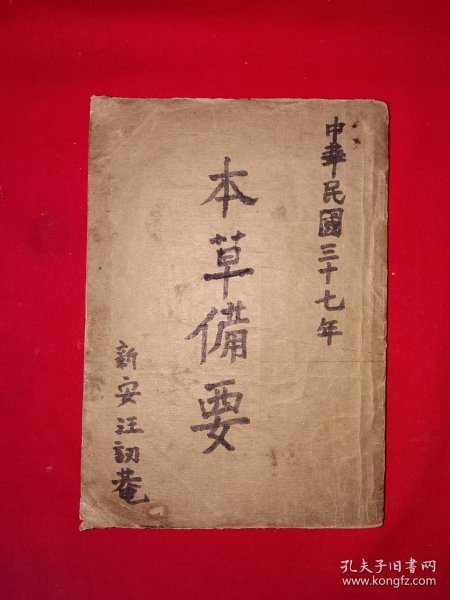 中華民國三十七年
本草備要
新安汪訒菴
孔夫子旧书网
www.kongfz.com